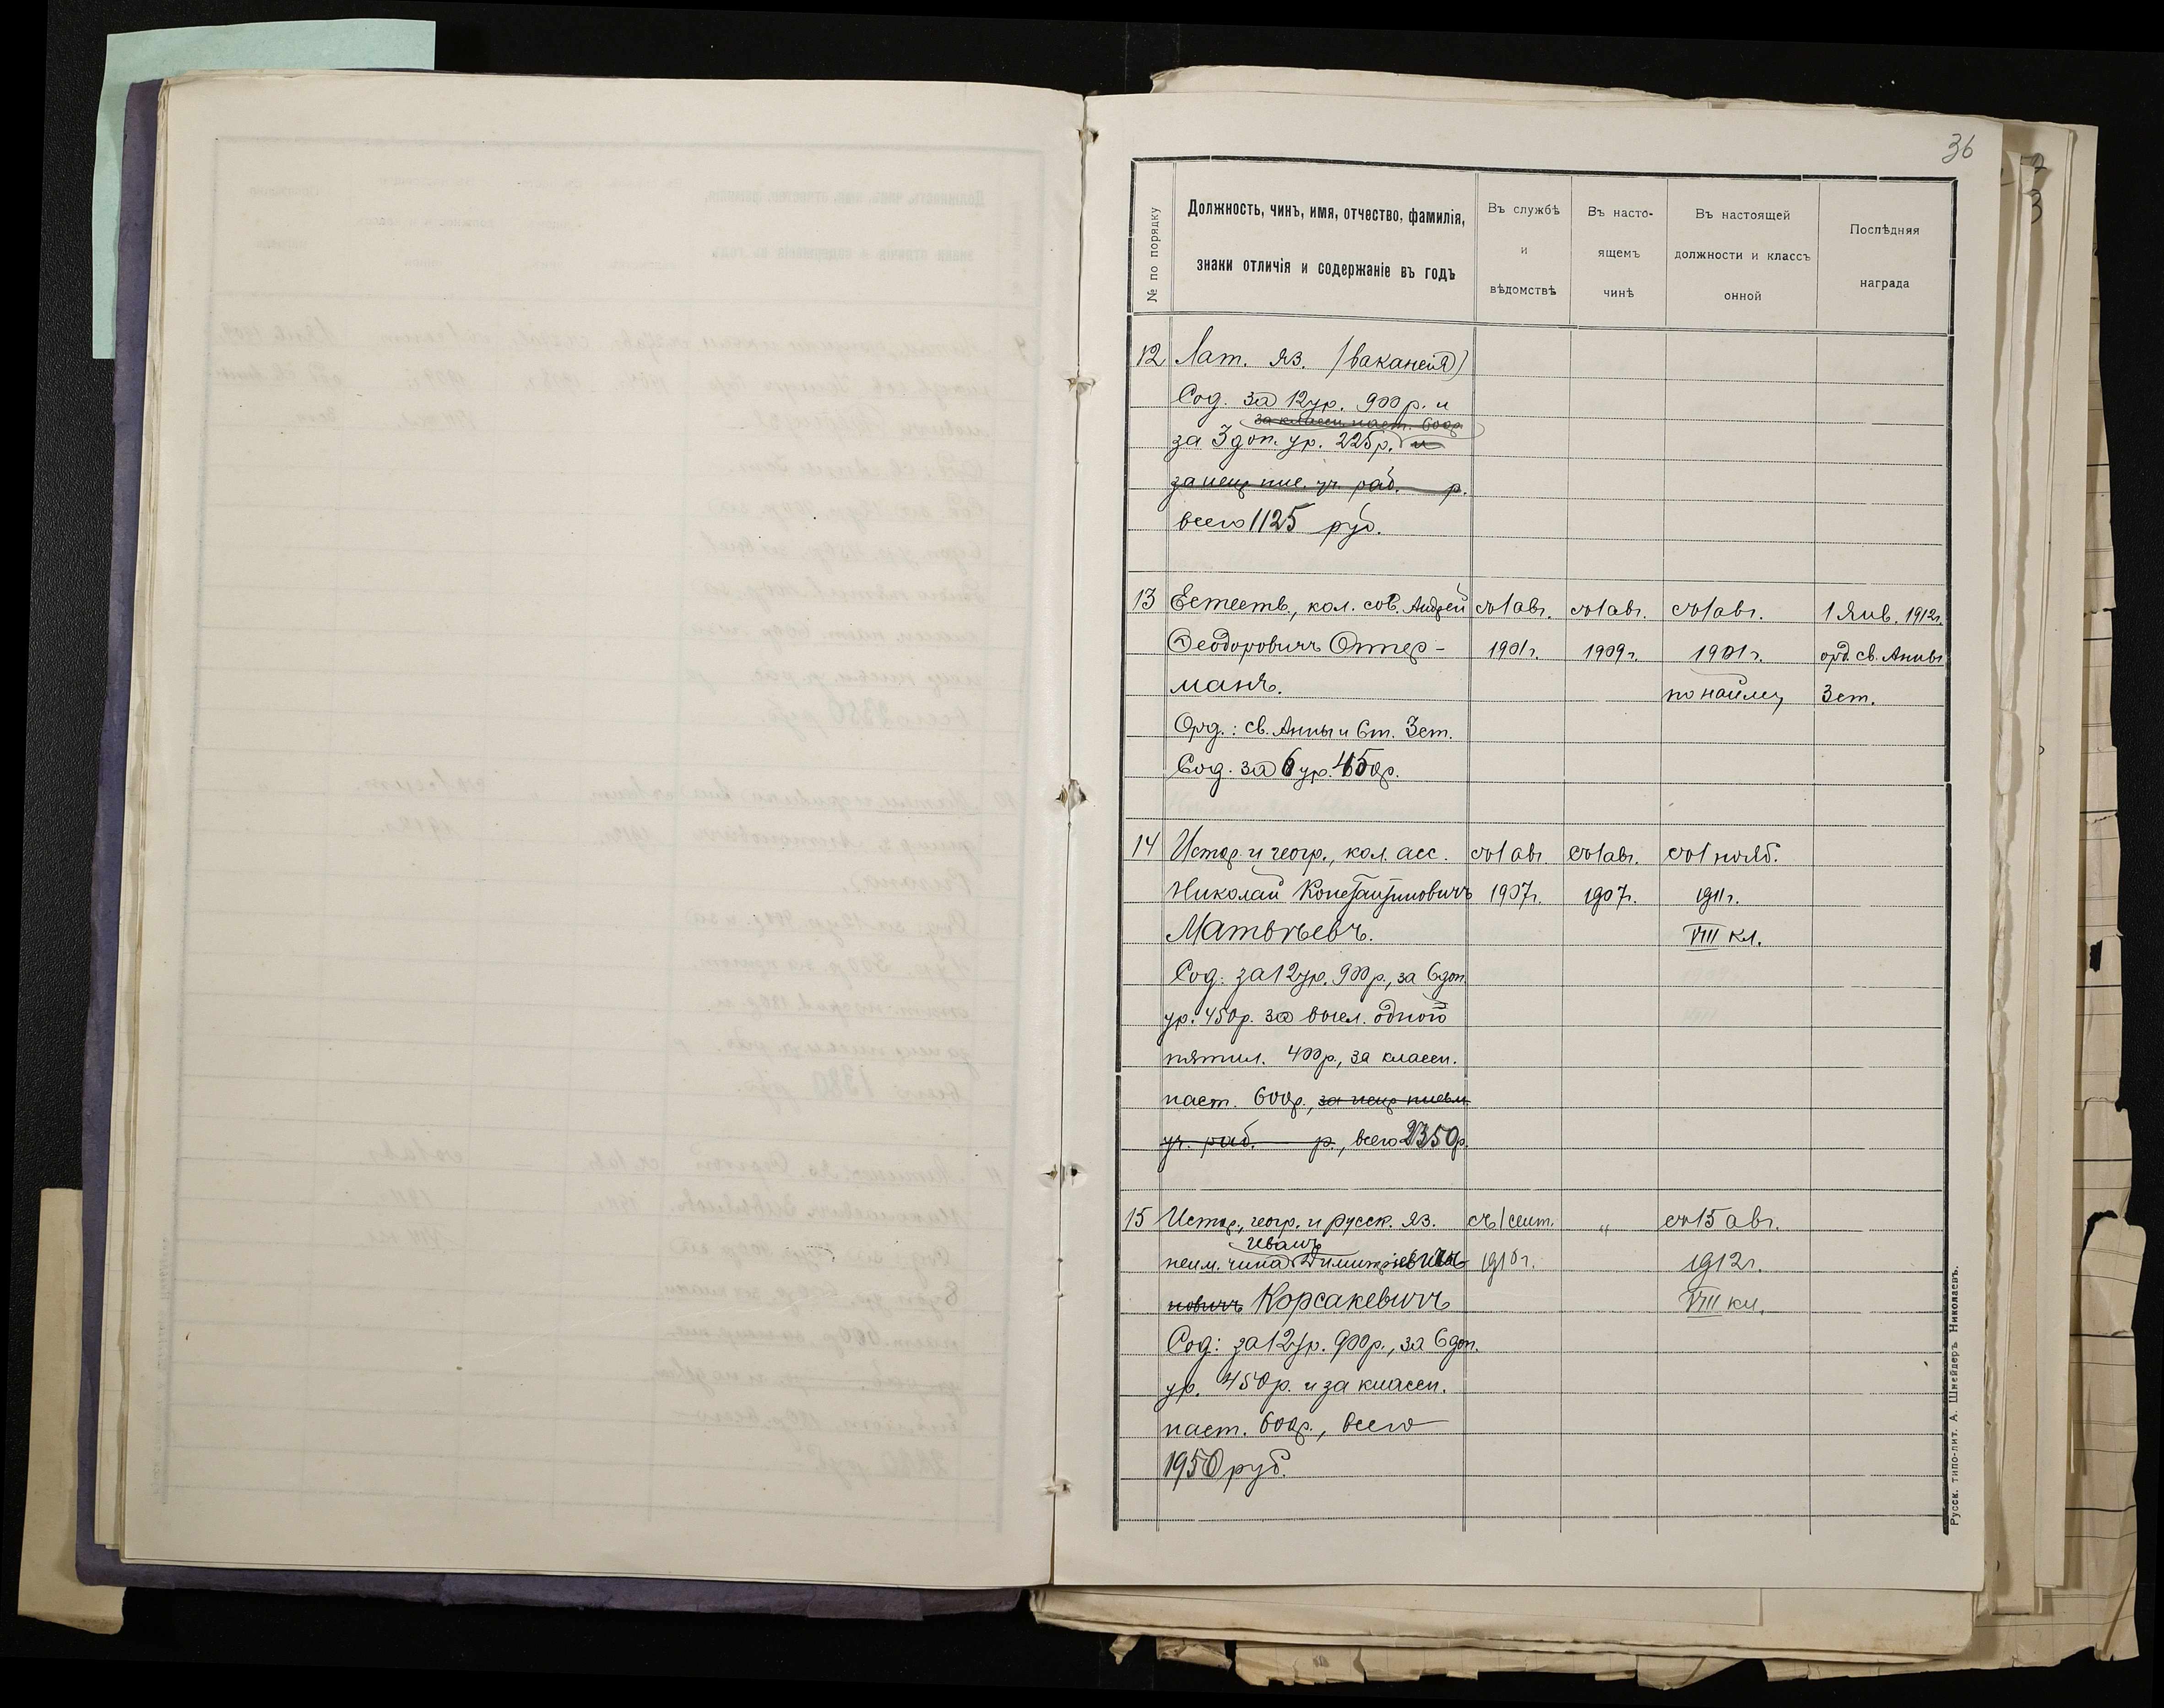 36
№ по порядку
Должность, чинъ, имя, отчество, фамилія,
знаки отличія и содержаніе въ годъ
Въ службѣ
и
вѣдомствѣ
Въ насто-
ящемъ
чинѣ
Въ настоящей
должности и классъ
онной
Послѣдняя
награда
12 Лат. яз. (вакансія)
Сод. за 12 ур. 900 р. и
за классн. наст. 600 р.
за 3 доп. ур. 225 р. и
за исп. пис. уч. раб. р.
всего 1125 руб.
13 Естеств., кол. сов. Андрей съ 1 авг. съ 1 авг. съ 1 авг. 1 Янв. 1912 г.
Ѳеодоровичъ Оттер- 1901 г. 1909 г. 1901 г. орд. св. Анны
манъ. по найму 3 ст.
Орд.: св. Анны и Ст. 3 ст.
Сод. за 6 ур. 450 р.
14 Истор. и геогр., кол. асс. съ 1 авг. съ 1 авг. съ 1 нояб.
Николай Константиновичъ 1907 г. 1907 г. 1911 г.
Матвѣевъ. VIII кл.
Сод: за 12 ур. 900 р., за 6 доп.
ур. 450 р. за высл. одного
пятил. 400 р., за классн.
наст. 600 р., за исп. письм.
уч. раб. р., всего 2350 р.
15 Истор., геогр. и русск. яз. съ 1 сент. „ съ 15 авг.
Иванъ
неим. чина Димитріевичъ 1910 г. 1912 г.
новичъ Корсакевичъ VIII кл.
Сод: за 12 ур. 900 р., за 6 доп.
ур. 450 р. и за классн.
наст. 600 р., всего
1950 руб.
Русск. типо-лит. А. Шнейдеръ Николаевъ.